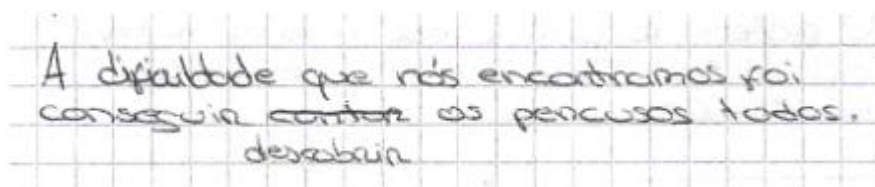 A dificuldade que nós encontramos foi
conseguir contar os percusos todos.
descobrir